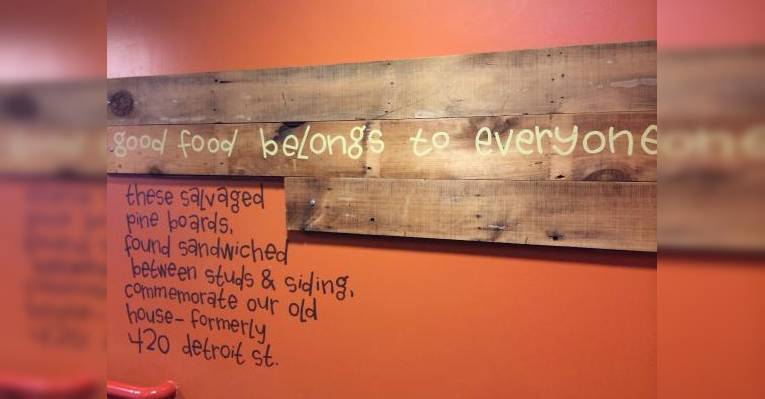 good food belongs to everyone
these salvaged
pine boards,
found sandwiched
between studs & siding,
commemorate our old
house-formerly
420 detroit st.